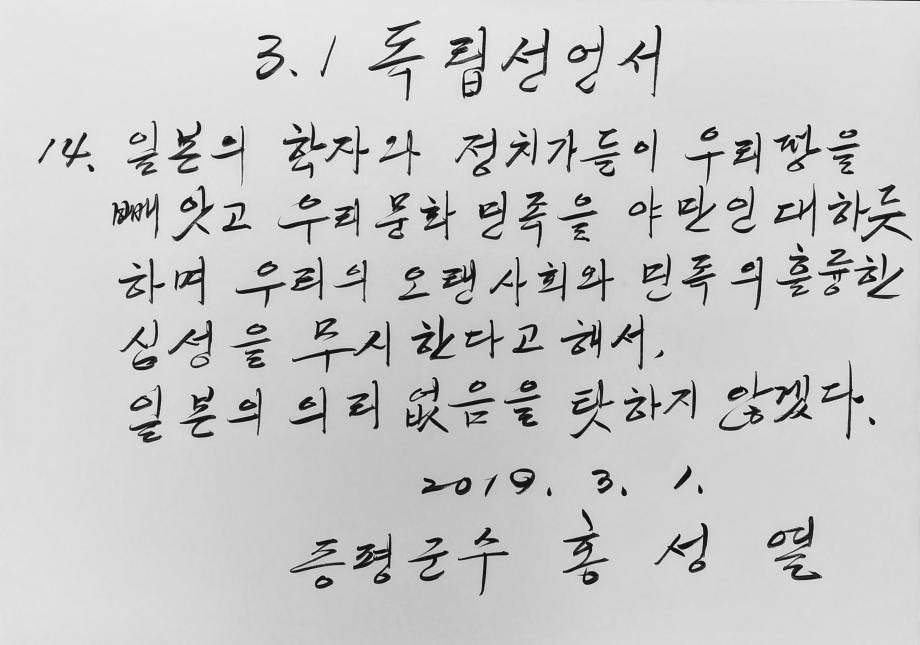 3.1 독립선언서
14. 일본의 학자와 정치가들이 우리땅을
빼앗고 우리문화 민족을 야만인 대하듯
하며 우리의 오랜사회와 민족의 훌륭한
심성을 무시한다고 해서,
일본의 의리 없음을 탓하지 않겠다.
2019. 3. 1.
증평군수 홍성열